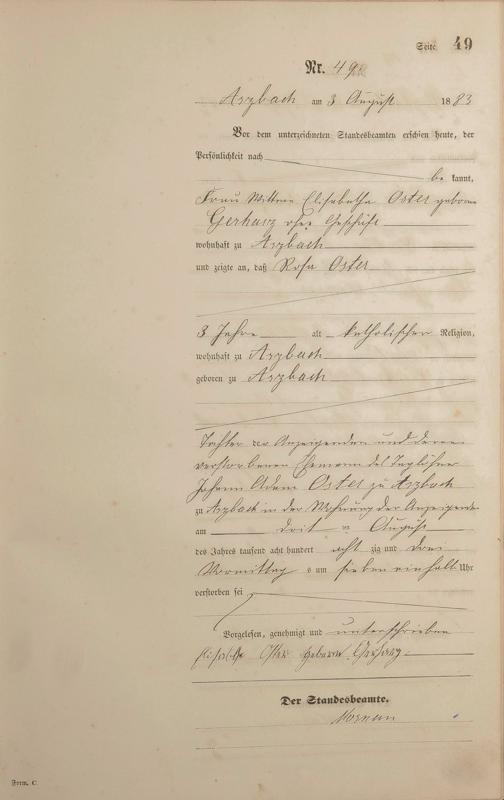 Seite 49
Nr. 49.
Arzbach am 3 August 1883
Vor dem unterzeichneten Standesbeamten erschien heute, der
Persönlichkeit nach
be kannt,
Frau Wittwe Elisabetha Oster geborene
Gerharz ohne Geschäft
wohnhaft zu Arzbach
und zeigte an, daß Rosa Oster
3 Jahre alt katholischer Religion,
wohnhaft zu Arzbach
geboren zu Arzbach
Tochter der Anzeigenden und deren
verstorbenen Ehemann des Taglöhner
Johann Adam Oster zu Arzbach
zu Arzbach in der Wohnung der Anzeigenden
am August
des Jahres tausend acht hundert acht zig und drei
Vormittags um sieben einhalb Uhr
verstorben sei
Vorgelesen, genehmigt und unterschrieben
Elisabetha Oster geborene Gerharz
Der Standesbeamte.
Form. C.